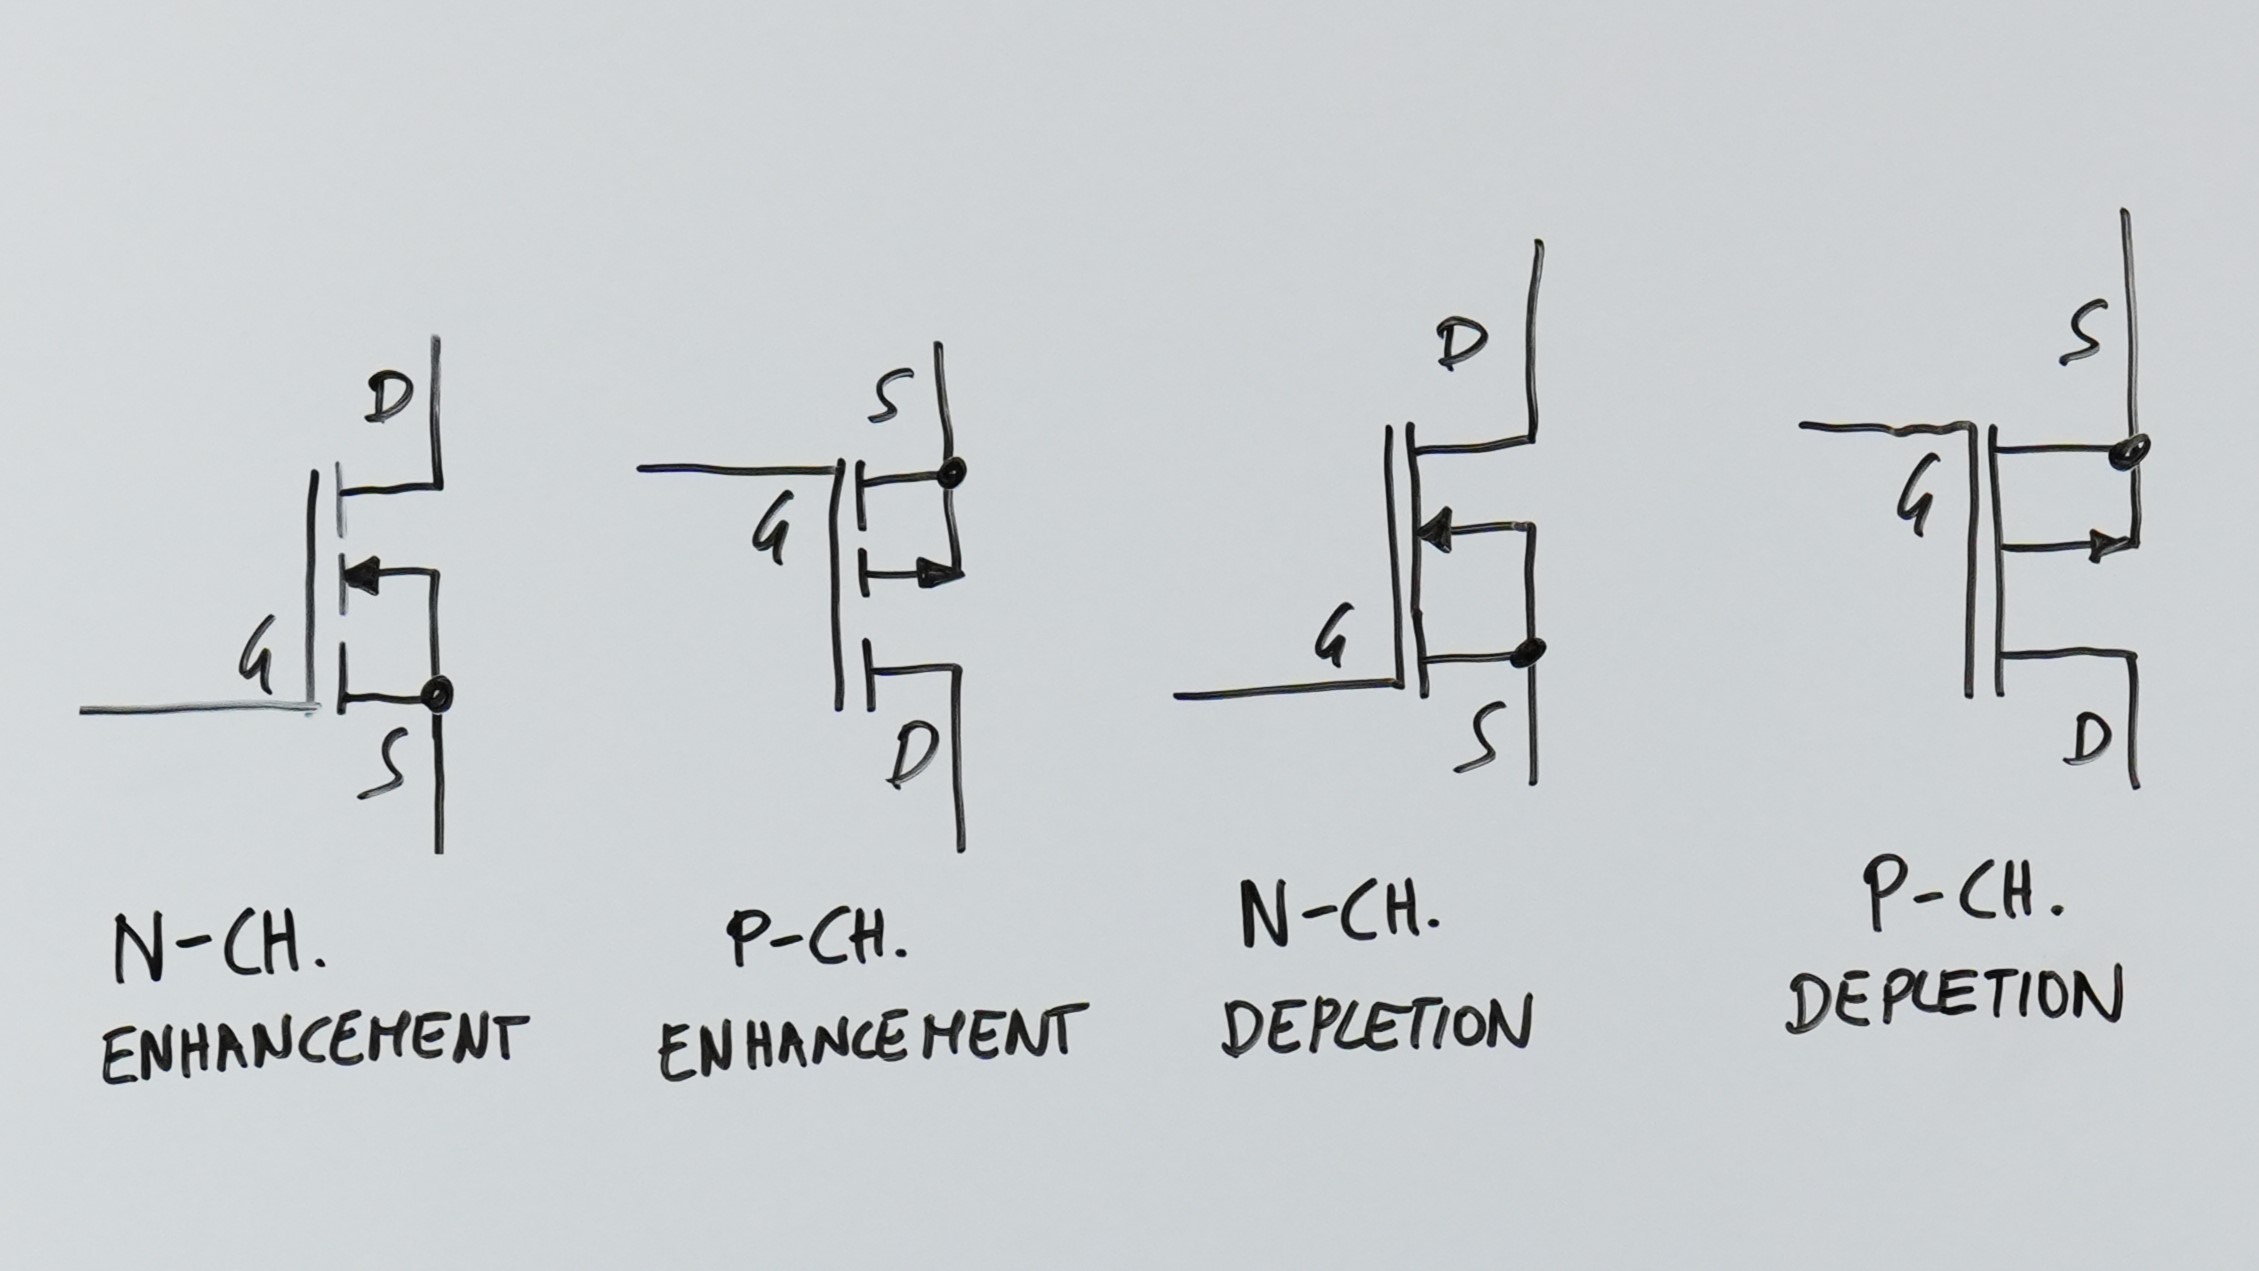 D
G
S
N-CH.
ENHANCEMENT
S
G
D
P-CH.
ENHANCEMENT
D
G
S
N-CH.
DEPLETION
S
G
D
P-CH.
DEPLETION